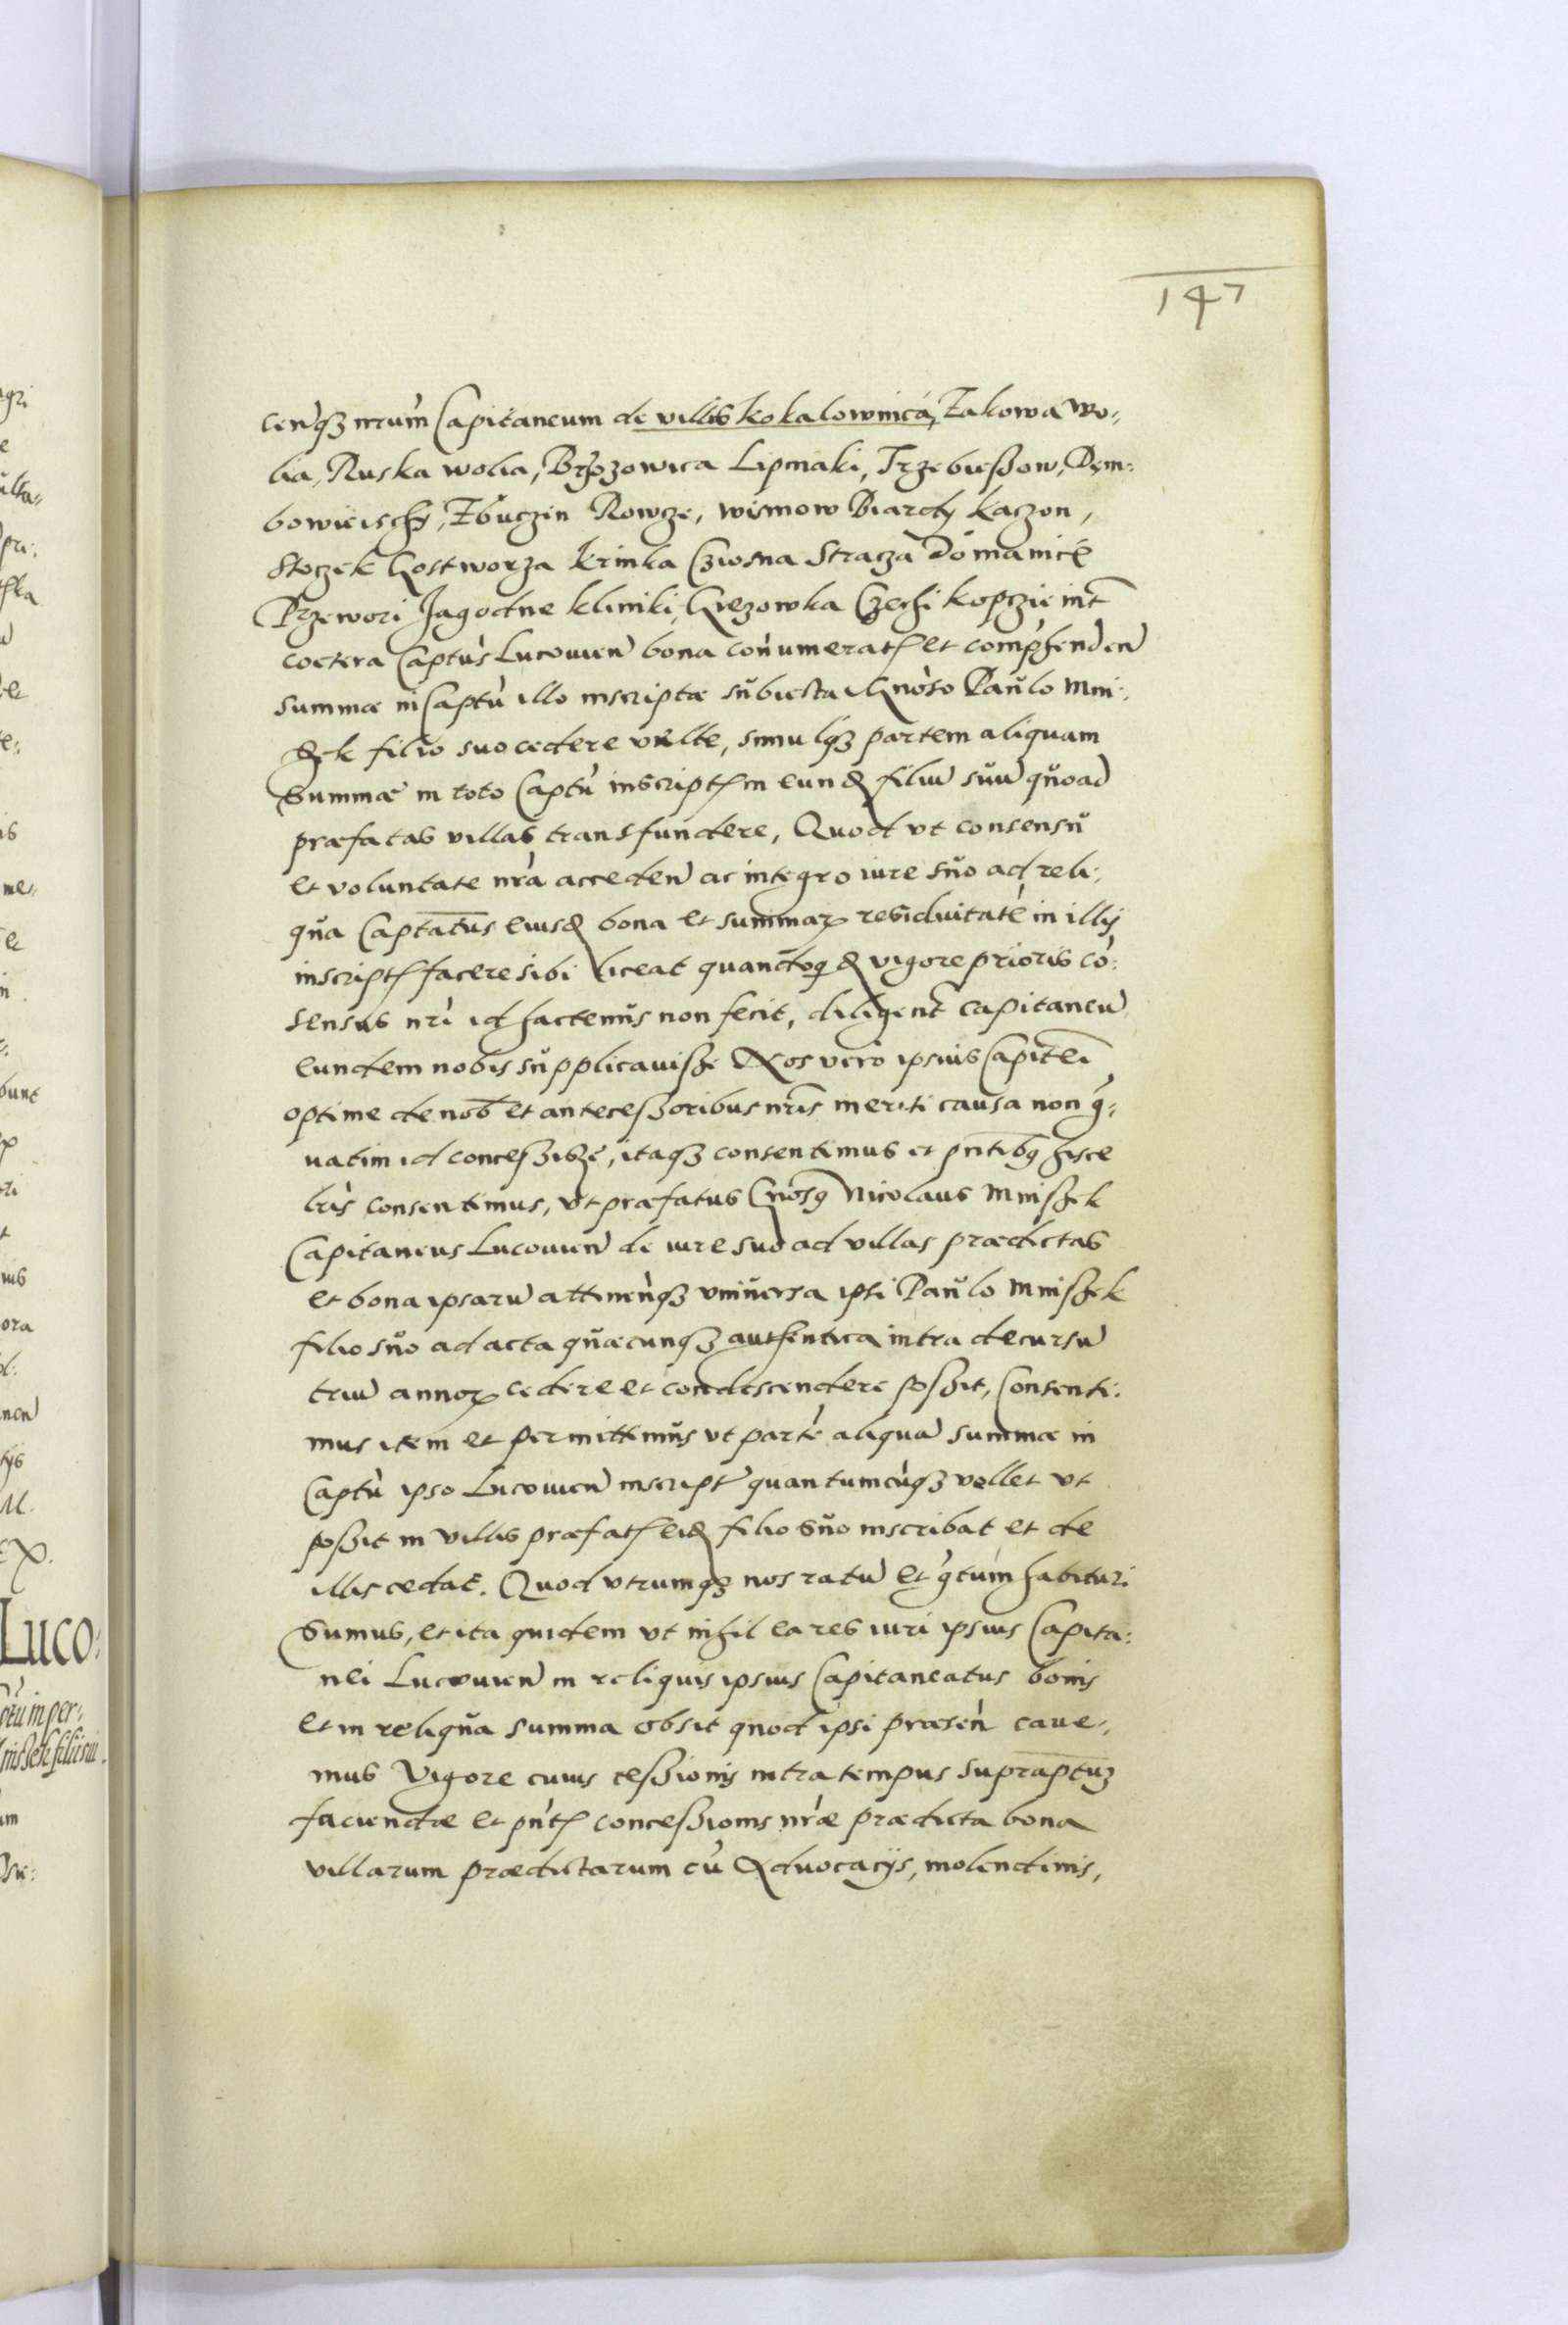 147
cenq̃ʒ nrum̀ Capitaneum de villis kokalownica, Zakowa Wo:
lia, Ruska wolia, Brzozowica Lipniaki, Trzebießow, Dem:
bowicischy, Zbuczin Rowcze, wisniow Biardy kaczon,
Stoczek Gostworza krinka Cziosna Stracza Domanice
Przewori Jagodne klimki, Gręzowka Czechi kopczie int̃
coetera Captùs Lucovień bona conumeratꝭ et comp̃henden̄
summæ in Captù illo inscriptæ subiecta Gnòso Paŭlo Mni:
ßek filio suo cedere velle, simulqʒ partem aliquam
Summæ in toto Captù inscriptꝭ in eundꝫ filiū suū quoad
præfatas villas transfundere, Quod vt consensŭ
et voluntate nrà acceden̄ ac integro iure sŭo ad reli:
qŭa Captatus eiusdꝫ bona et summaꝝ residuitatẽ in illis
inscriptꝭ facere sibi liceat quandoqdꝫ vigore prioris cò:
sensus nrì id hactenŭs non fecit, diligent̃ capitaneū
eundem nobis sŭpplicauiße Nos vero ipsius Capitei
optime de nob̃ et anteceßoribus nrìs meriti causa non g̃:
uatim id conceßiße, itaqʒ consentimus et pñtibꝰ hisce
lrìs consentimus, vt præfatus Gnòsꝰ Nicolaus Mnißek
Capitaneus Lucouień de iure suo ad villas prædictas
et bona ipsarū attineǹqʒ vniŭersa ipsi Paŭlo Mnißek
filio sŭo ad acta qŭæcunqʒ authentica intra decursū
triū annoꝝ cedere et condescendere poßit, Consenti:
mus item et permittimŭs vt partè aliquā summæ in
Captù ipso Lucouień inscript̃ quantumcùqʒ vellet vt
poßit in villis præfatꝭ eidꝫ filio sŭo inscribat et de
illis cedat. Quod vtrumqʒ nos ratū et g̃tum habituri
Sumus, et ita quidem vt nihil ea res iuri ipsius Capita:
nei Lucouień in reliquis ipsius Capitaneatus bonis
et in reliqŭa summa obsit quod ipsi præseǹ caue:
mus Vigore cuius ceßionis intra tempus supraptũʒ
faciendæ et pñtꝭ conceßionis nræ prædicta bona
villarum prædictarum cù Aduocatijs, molendinis,